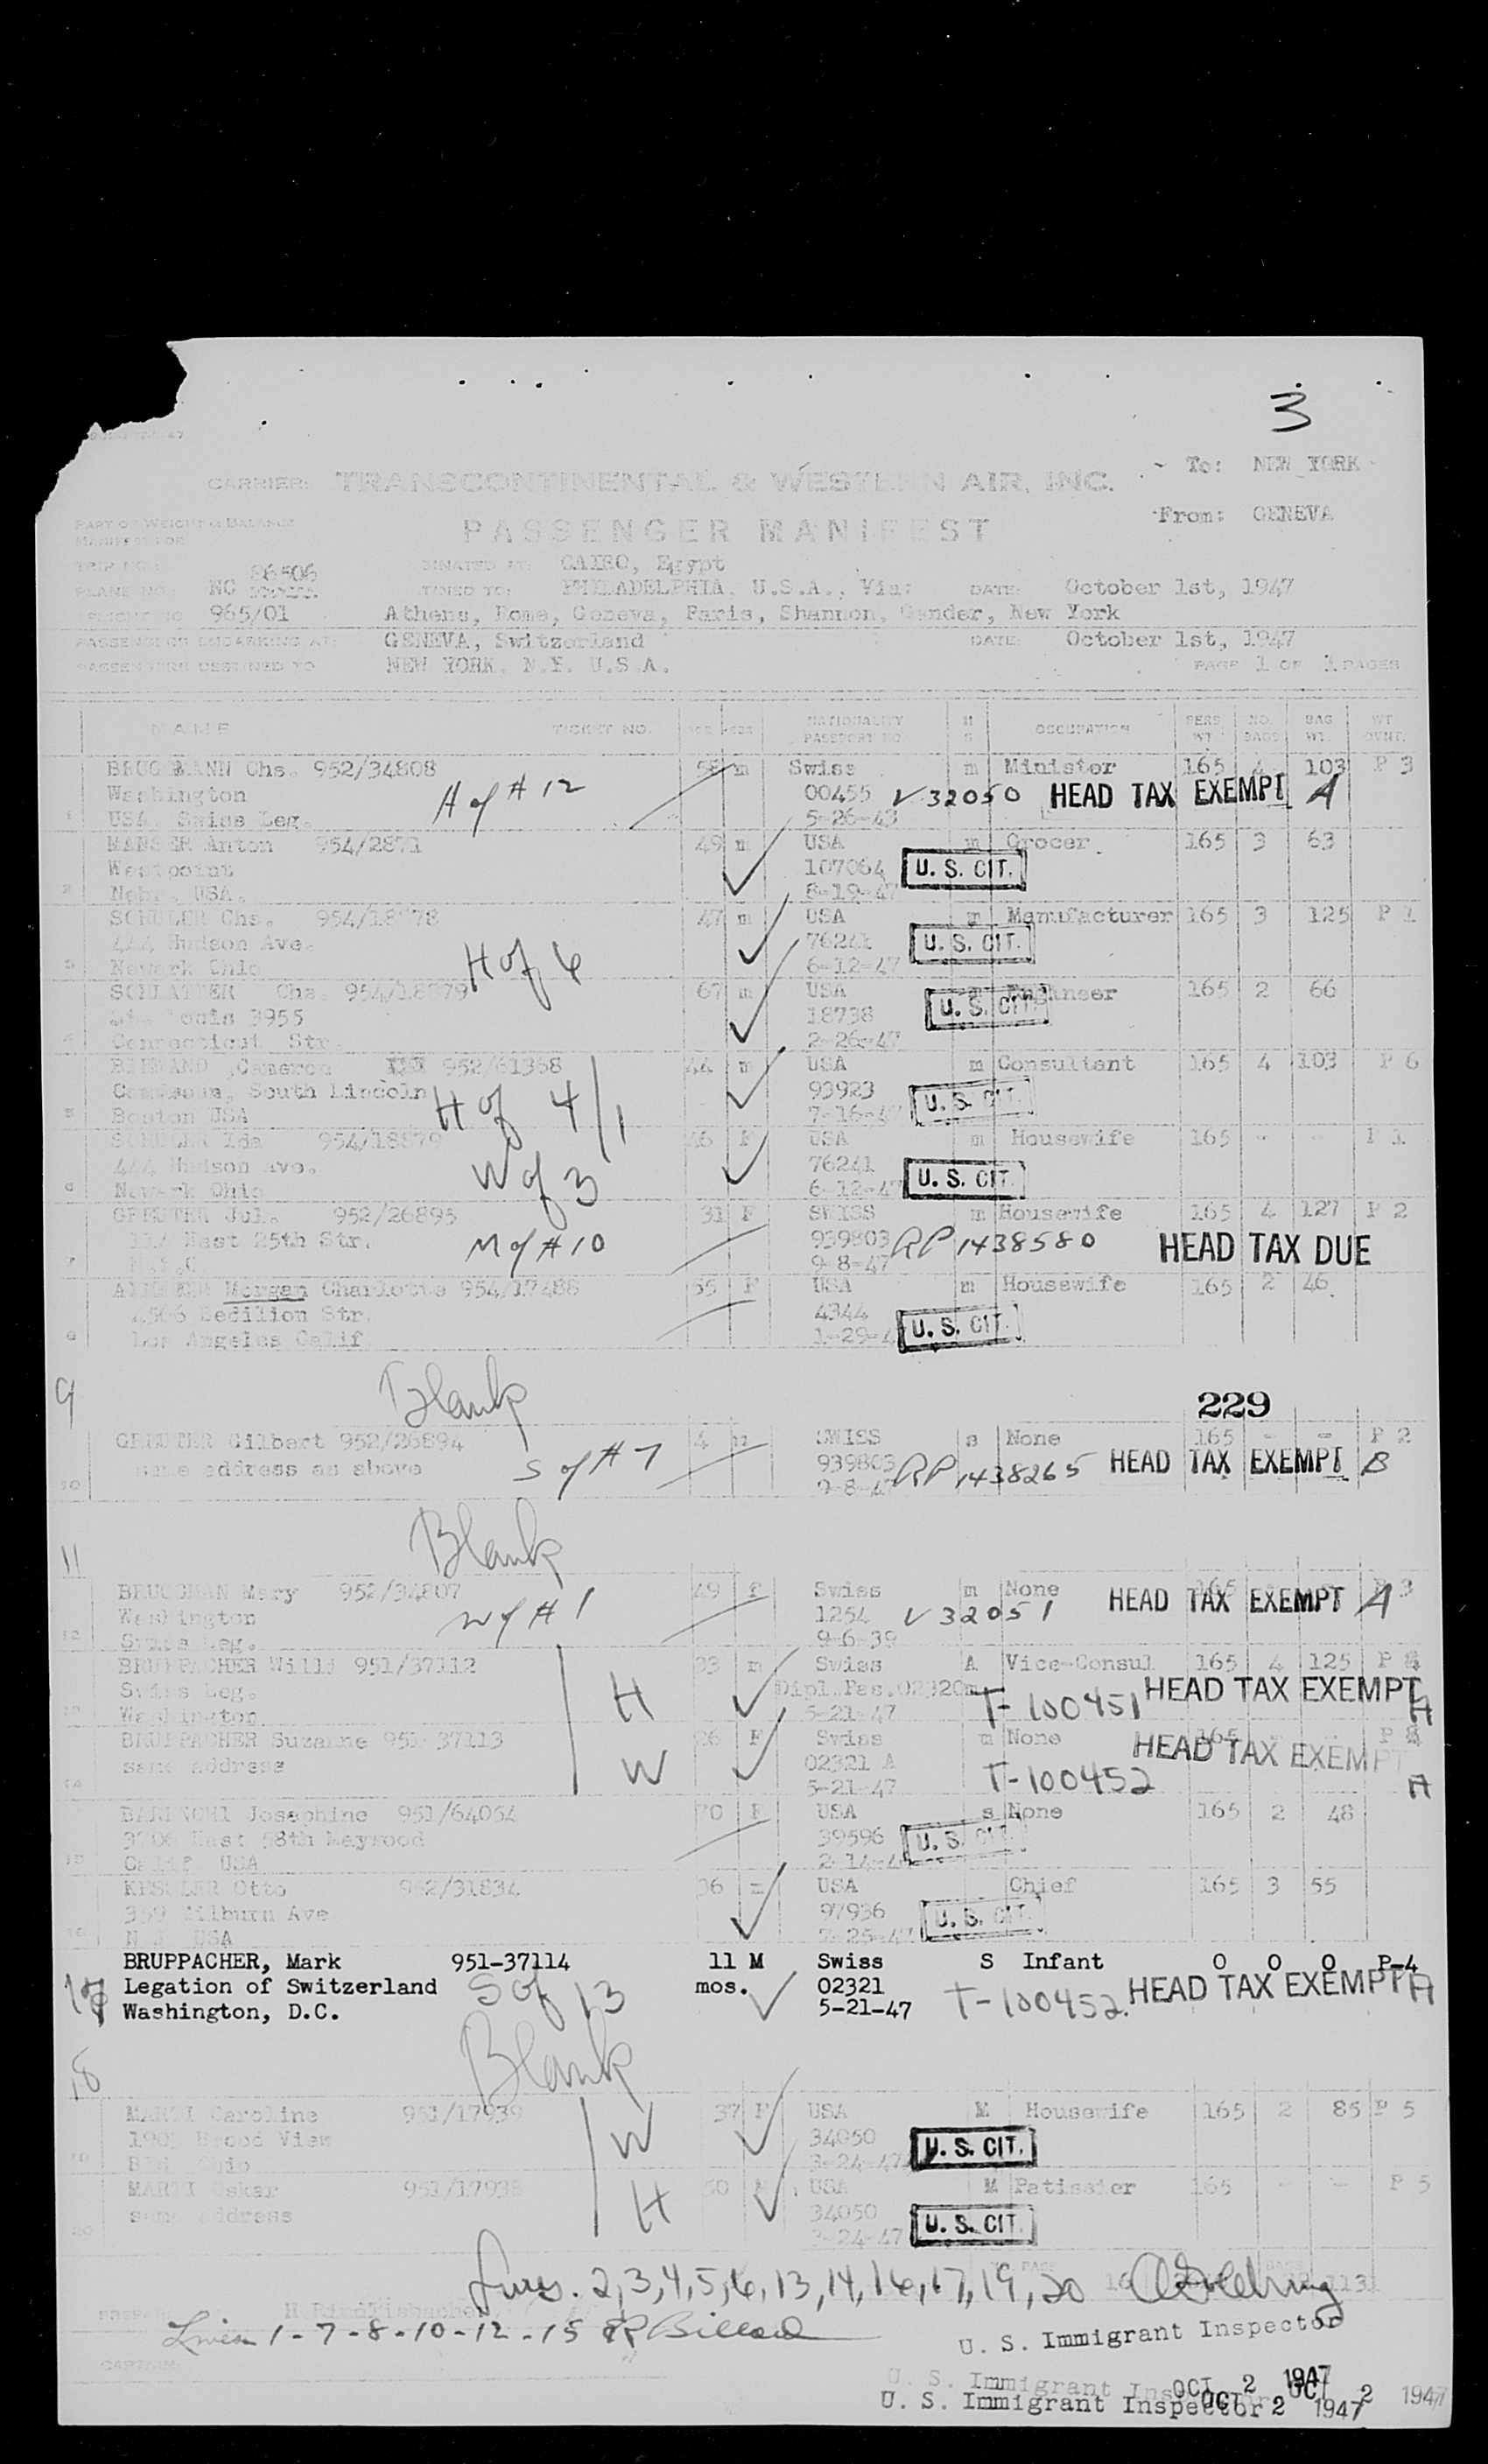 3
CARRIER: TRANSCONTINENTAL & WESTERN AIR, INC. To: NEW YORK
PART OF WEIGHT & BALANCE PASSENGER MANIFEST From: GENEVA
MANIFEST FOR
TRIP NO. 86506 CAIRO, Egypt
PLANE NO. NC PHILADELPHIA, U.S.A., Via: DATE: October 1st, 1947
965/01 Athens, Rome, Geneva, Paris, Shannon, Gander, New York
PASSENGERS EMBARKING AT: GENEVA, Switzerland DATE: October 1st, 1947
PASSENGERS DESTINED TO NEW YORK, N.Y. U.S.A. PAGE 1 OF 1 PAGES
NAME TICKET NO. AGE SEX NATIONALITY PASSPORT NO. M S OCCUPATION PERS. WT. NO. BAGS BAG WT. WT. OVNT.
BRUGGMANN Chs. 952/34808 58 m Swiss m Minister 165 4 103 P 3
Washington H of # 12 00455 V 32050 HEAD TAX EXEMPT A
1 USA. Swiss Leg. 5-26-43
MANSER Anton 954/2871 49 m USA m Grocer. 165 3 63
Westpoint 107064 U. S. CIT.
2 Nebr. USA. 8-19-47
SCHULER Chs. 954/18878 47 m USA m Manufacturer 165 3 125 P 1
444 Hudson Ave. 76241 U. S. CIT.
3 Newark Ohio H of 6 6-12-47
SCHLATTER Chs. 954/18779 67 m USA Engineer 165 2 66
Louis 3955 18738 U. S. CIT.
4 Connecticut Str. 2-26-47
Cameron 952/61368 44 m USA m Consultant 165 4 103 P 6
South Lincoln H of 4/1 93923 U. S. CIT.
5 Boston USA 7-16-47
SCHULER Ida 954/18879 46 F USA m Housewife 165 - - P 1
444 Hudson Ave. W of 3 76241
6 Newark Ohio 6-12-47 U. S. CIT.
GREUTER Jul. 952/26895 31 F SWISS m Housewife 165 4 127 P 2
East 25th Str. M of # 10 939803 RP 1438580 HEAD TAX DUE
7 9-8-47
Morgan Charlotte 954/17488 55 F USA m Housewife 165 2 46.
4506 Str. 4344
8 Los Angeles Calif 1-29-4 U. S. CIT.
9 Blank 229
GREUTER Gilbert 952/26894 4 m SWISS s None 165 - - P 2
same address as above S of # 7 939803 RP 1438265 HEAD TAX EXEMPT B
10 9-8-47
11 Blank
BRUGGMAN Mary 952/34807 49 f Swiss m None 165 P 3
Washington W of # 1 1254 V 32051 HEAD TAX EXEMPT A
12 Swiss Leg. 9-6-39
BRUPPACHER Willi 951/37112 33 m Swiss A Vice-Consul 165 4 125 P
Swiss Leg. H Dipl.Pas.02320 T-100451 HEAD TAX EXEMPT A
13 Washington 5-21-47
BRUPPACHER Suzanne 951 37113 26 F Swiss m None 165 P
same address W 02321 A HEAD TAX EXEMPT
14 5-21-47 T-100452 A
Josephine 951/64054 70 F USA s None 165 2 48
East 58th Maywood 39596 U. S. CIT.
15 Calif USA 2-14-4
KESSLER Otto 952/31834 36 m USA Chief 165 3 55
359 Milburn Ave 97936 U. S. CIT.
16 N.J. USA 7-25-47
BRUPPACHER, Mark 951-37114 11 M Swiss S Infant 0 0 0 P-4
17 Legation of Switzerland S of 13 mos. 02321 T-100452 HEAD TAX EXEMPT A
Washington, D.C. 5-21-47
18 Blank
MARTI Caroline 951/17939 37 F USA M Housewife 165 2 85 P 5
Wood View W 34050 U. S. CIT.
19 Ohio 3-24-47
MARTI Oskar 951/17938 50 M USA M Patissier 165 - - P 5
same address H 34050 U. S. CIT.
20 3-24-47
Lines. 2,3,4,5,6,13,14,16,17,19,20
Lines 1-7-8-10-12-15
U. S. Immigrant Inspector
U. S. Immigrant Inspector OCT 2 1947
U. S. Immigrant Inspector OCT 2 1947 OCT 2 1947
CAPTAIN: